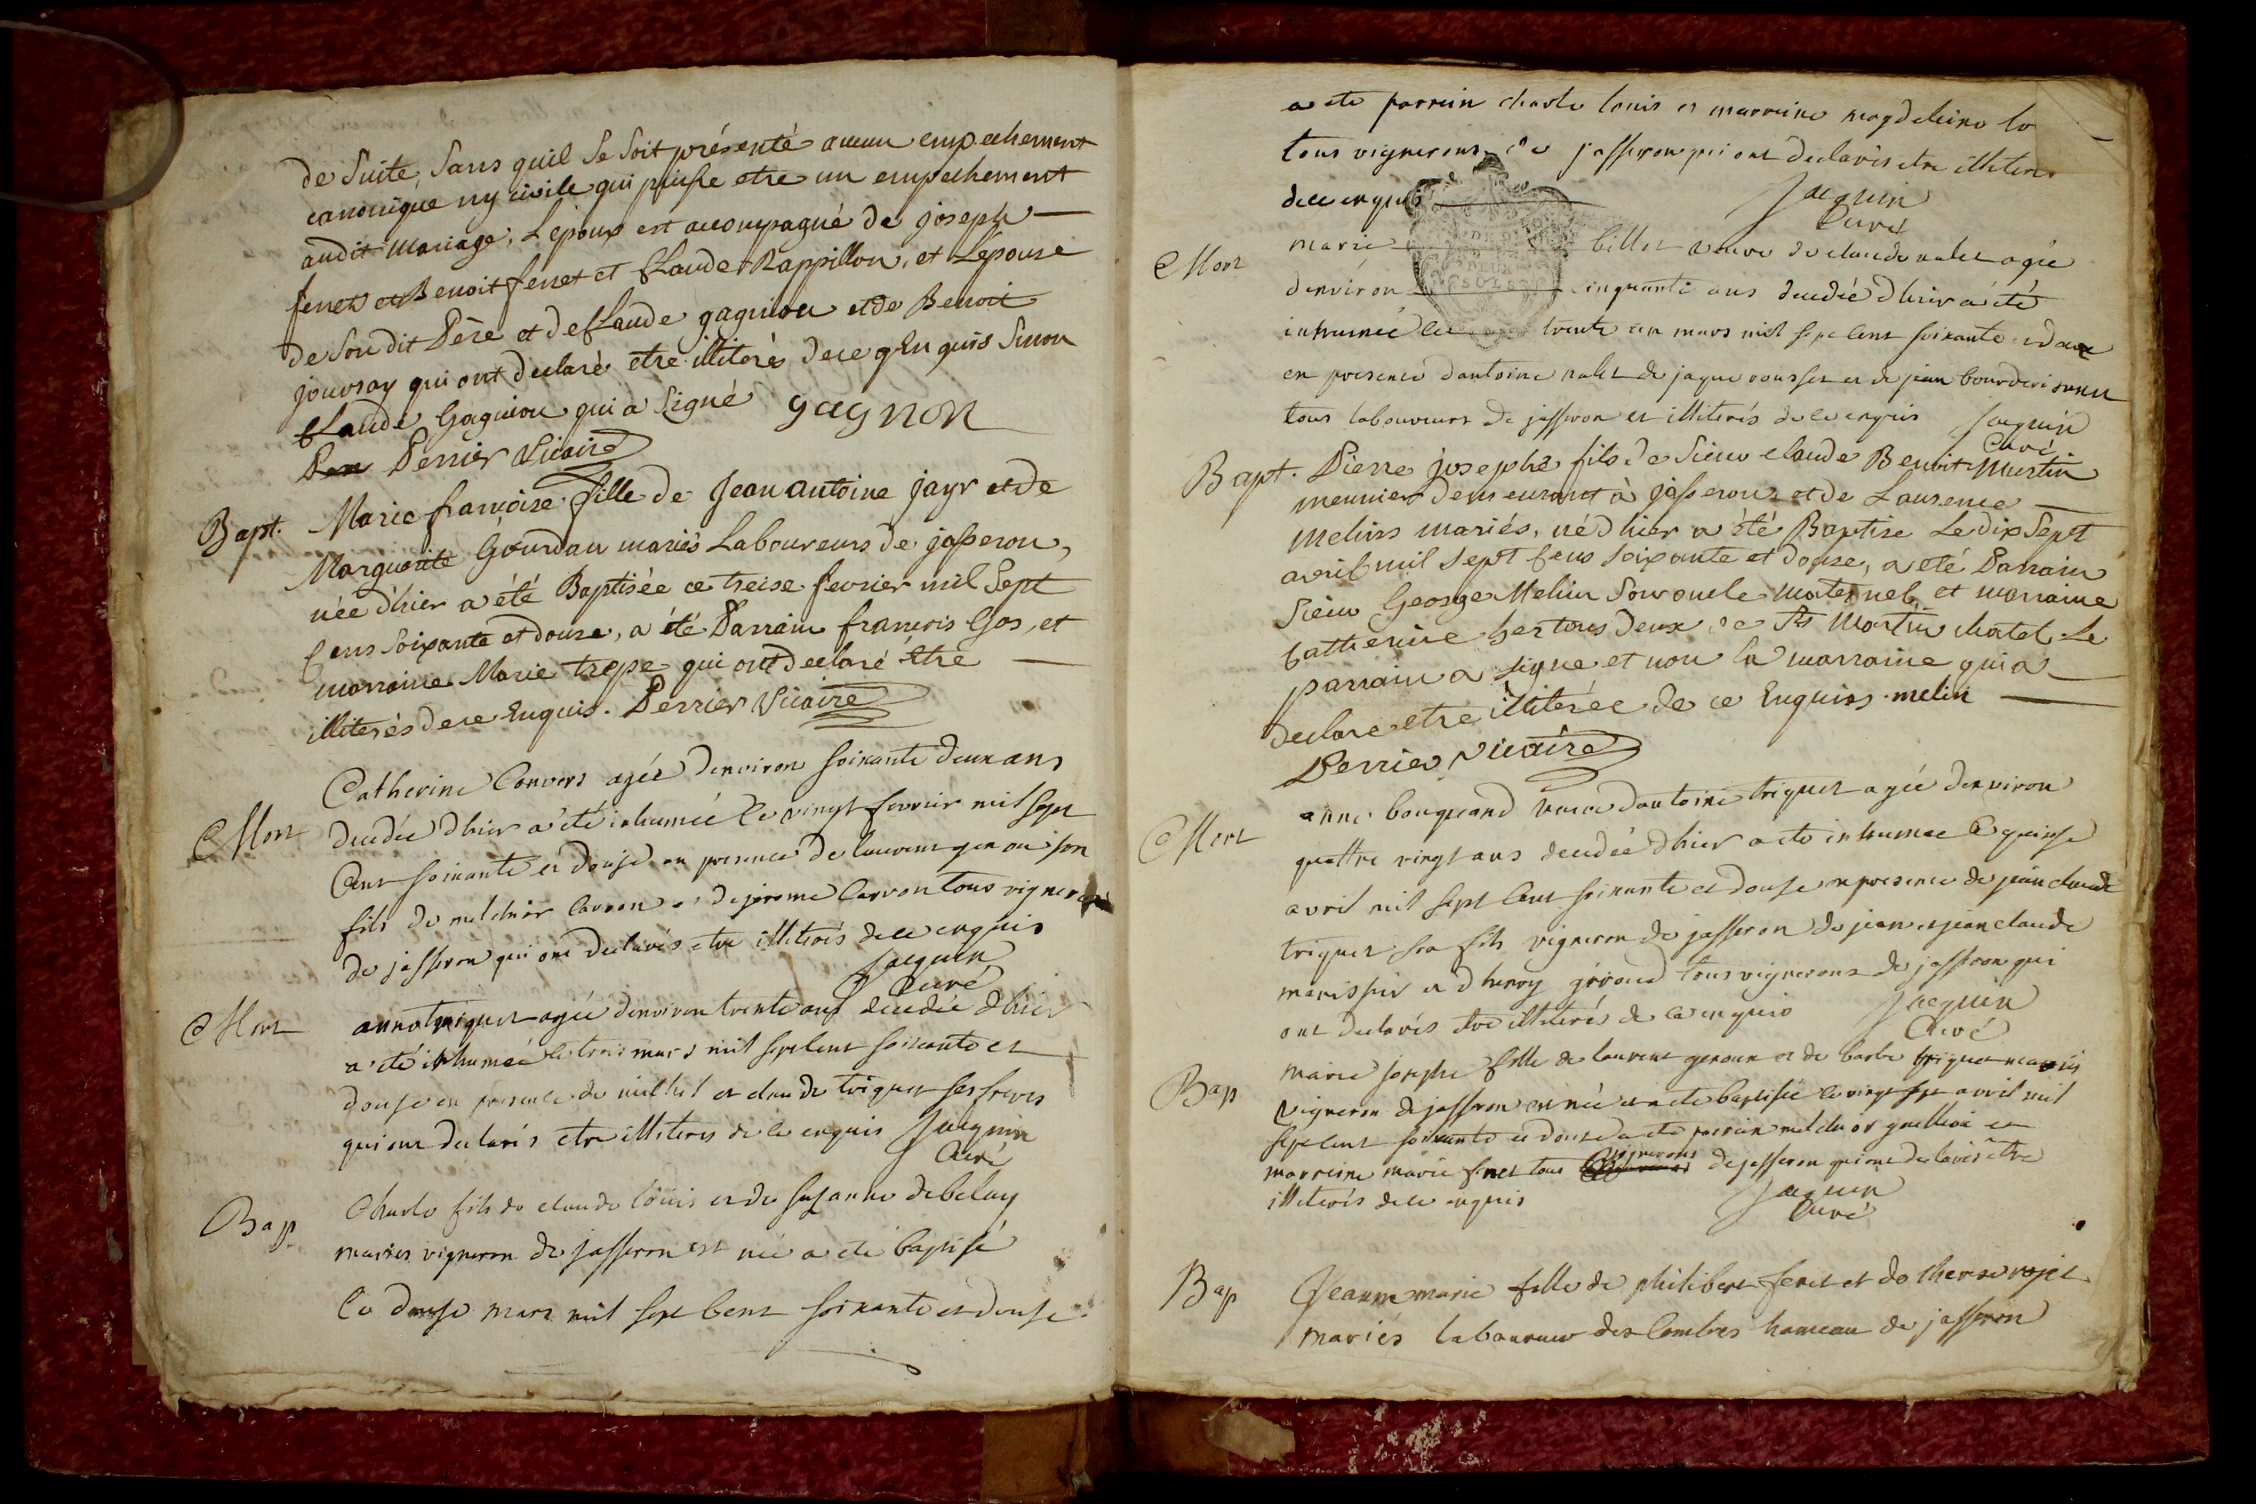 de Suite, Sans quil Se Soit présenté aucun empechement
canonique ny civile qui puisse etre un empechement
audit Mariage, L'epoux est accompagné de joseph
feret et Benoit feret et Claude Rappillon, et Lepouse
de Son dit Pere et de Claude gagnion et de Benoit
jouvray qui ont declaré etre illiterés de ce Enquis Sinon
Claude Gagnion qui a Signé gagnon
Perrier Vicaire
Bapt. Marie francoise fille de Jean antoine jayr et de
Marguerite Gourdan mariés Laboureurs de jasseron,
née d'hier a été Baptisée ce treise fevrier mil Sept
Cens Soixante et douze, a été Parrain francois Gos, et
marraine Marie trepe qui ont declaré être
illiterés de ce Enquis. Perrier Vicaire
Mort Catherine Convers agée denviron soixante deux ans
decedée dhier a été inhumée le vingt fevrier mil sept
Cent soixante et douse en presence de laurent son
fils de melchior et de jerome tous vignerons
de jasseron qui ont declarés etre illiterés de ce enquis
Jacquin
Curé
Mort anne triquet agée denviron trente ans decedée dhier
a été inhumée le trois mars mil sept cent soixante et
douse en presence de michel et claude triquet ses freres
qui ont declarés etre illiteres de ce enquis Jacquin
Curé
Bap. Charle fils de claude louis et de susanne debelay
mariés vigneron de jasseron est né a été baptisé
le douse mars mil sept Cent soixante et douse.
a ete parrein charle louis et marreine magdeleine
tous vignerons de jasseron qui ont declarés etre illiteres
de ce enquis
Jacquin
Curé
Mort marie billet veuve de claude nalet agée
denviron cinquante ans decedée dhier a été
inhumée le trente un mars mil sept cent soixante et douse
en presence dantoine nalet de jaque rousset et de jean
tous laboureurs de jasseron et illiterés de ce enquis Jacquin
Curé
Bapt. Pierre josephe fils de Sieur claude Benoit Martin
meunier demeurant à jasseron et de Laurence
Melins mariés, né d'hier a été Baptise Le dix Sept
avril mil Sept Cens Soixante et douse, a été Parrain
Sieur George Melin Son oncle maternel, et marraine
Catherine tous Deux de St Martin chatel Le
parrain a signe et non la marraine qui a
declare etre illiterée de ce Enquiss. melin
Perrier Vicaire
Mort anne bouquand veuve dantoine triquet agée denviron
quattre vingt ans decedée dhier a ete inhumee le quinse
avril mil sept Cent soixante et douse en presence de jean claude
triquet son fils vigneron de jasseron de jean et jean claude
et d henry géroud tous vignerons de jasseron qui
ont declarés etre illiterés de ce enquis Jacquin
Curé
Bap marie josephe fille de laurent et de barbe triquet mariés
vigneron de jasseron est née et a ete baptisée le vingt sept avril mil
sept cent soixante et douse a ete parrein melchior et
marreine marie feret tous vignerons de jasseron qui ont declarés être
illiterés de ce enquis
Jacquin
Curé
Bap Jeanne marie fille de philibert feret et de therese
mariés laboureur des Combes hameau de jasseron